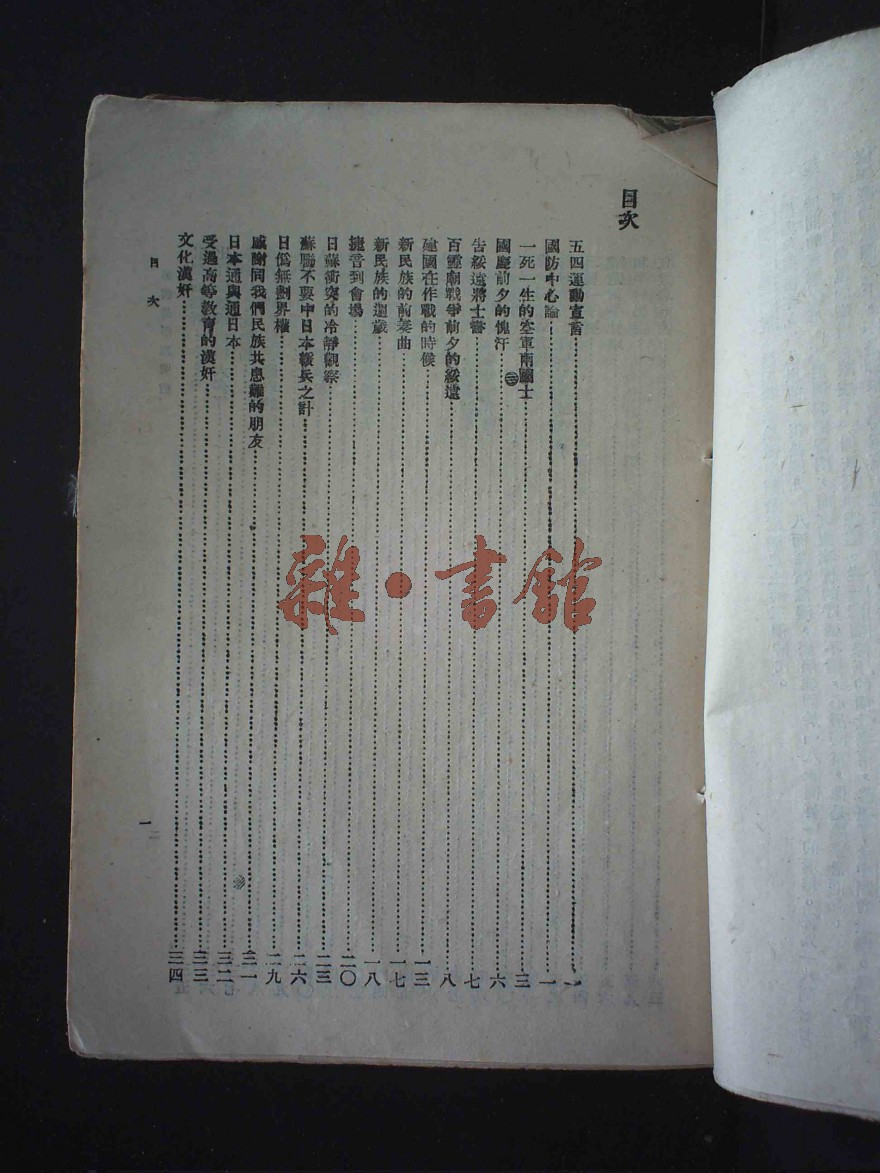 目次
五四運動宣言 一
國防中心論 一
一死一生的空軍兩國士 三
國慶前夕的愧汗 六
告綏遠將士書 七
百靈廟戰爭前夕的綏遠 八
建國在作戰的時候 一三
新民族的前奏曲 一七
新民族的週歲 一八
捷音到會場 二〇
日蘇衝突的冷靜觀察 二三
蘇聯不要中日本緩兵之計 二六
日僞無劃界權 二九
感謝同我們民族共患難的朋友 三一
日本通與通日本 三二
受過高等教育的漢奸 三三
文化漢奸 三四
目次
一
雜·書館